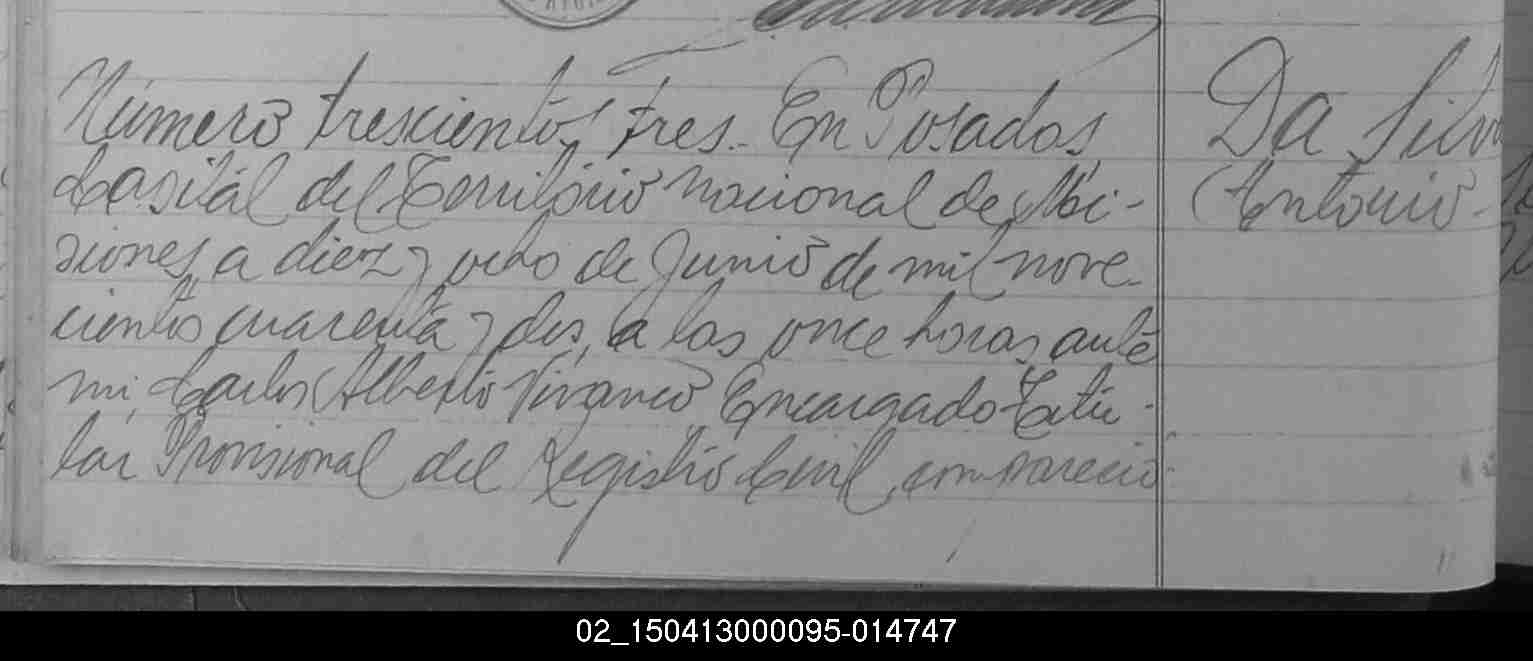 Número trescientos tres.- En Posadas,
Capitál del Território nacional de Mi-
siones, a diez y ocho de Junio de mil nove-
cientos cuarenta y dos, a las once horas, ante
mi, Carlos Alberto Vivanco Encargado Titu-
lar Provisional del Registro Civil, compareció
Da Silva
Antonio-
02_150413000095-014747